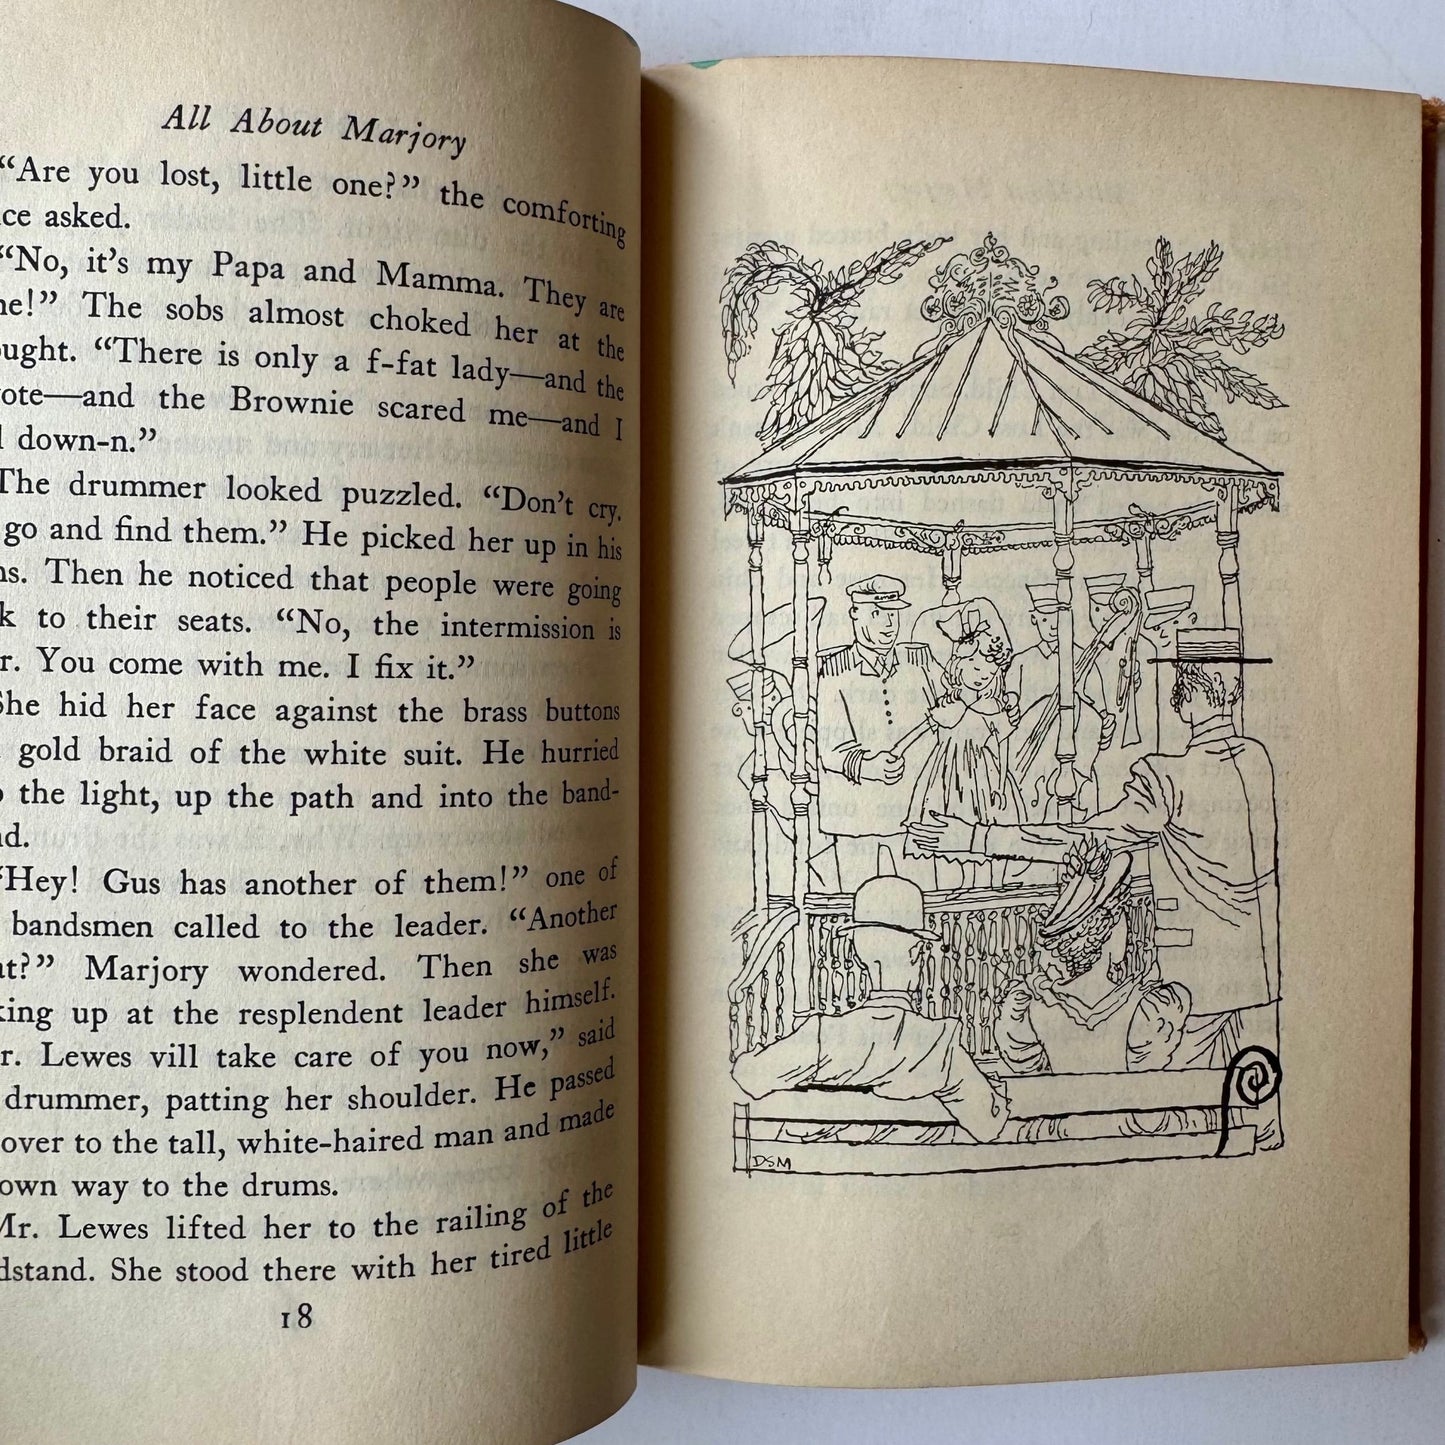 All About Marjory
“Are you lost, little one?” the comforting
ce asked.
“No, it’s my Papa and Mamma. They are
ne!” The sobs almost choked her at the
ought. “There is only a f-fat lady—and the
yote—and the Brownie scared me—and I
l down-n.”
The drummer looked puzzled. “Don’t cry.
go and find them.” He picked her up in his
ms. Then he noticed that people were going
k to their seats. “No, the intermission is
r. You come with me. I fix it.”
She hid her face against the brass buttons
gold braid of the white suit. He hurried
o the light, up the path and into the band-
nd.
“Hey! Gus has another of them!” one of
bandsmen called to the leader. “Another
at?” Marjory wondered. Then she was
king up at the resplendent leader himself.
r. Lewes vill take care of you now,” said
drummer, patting her shoulder. He passed
over to the tall, white-haired man and made
own way to the drums.
Mr. Lewes lifted her to the railing of the
dstand. She stood there with her tired little
18
DSM